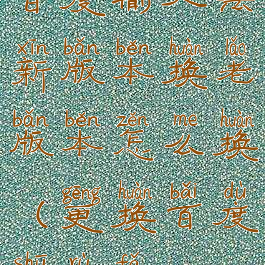 xīn bǎn běn huàn lǎo
新版本换老
bǎn běn zěn me huàn
版本怎么换
gēng huàn bǎi dù
(更换百度
shū rù fǎ